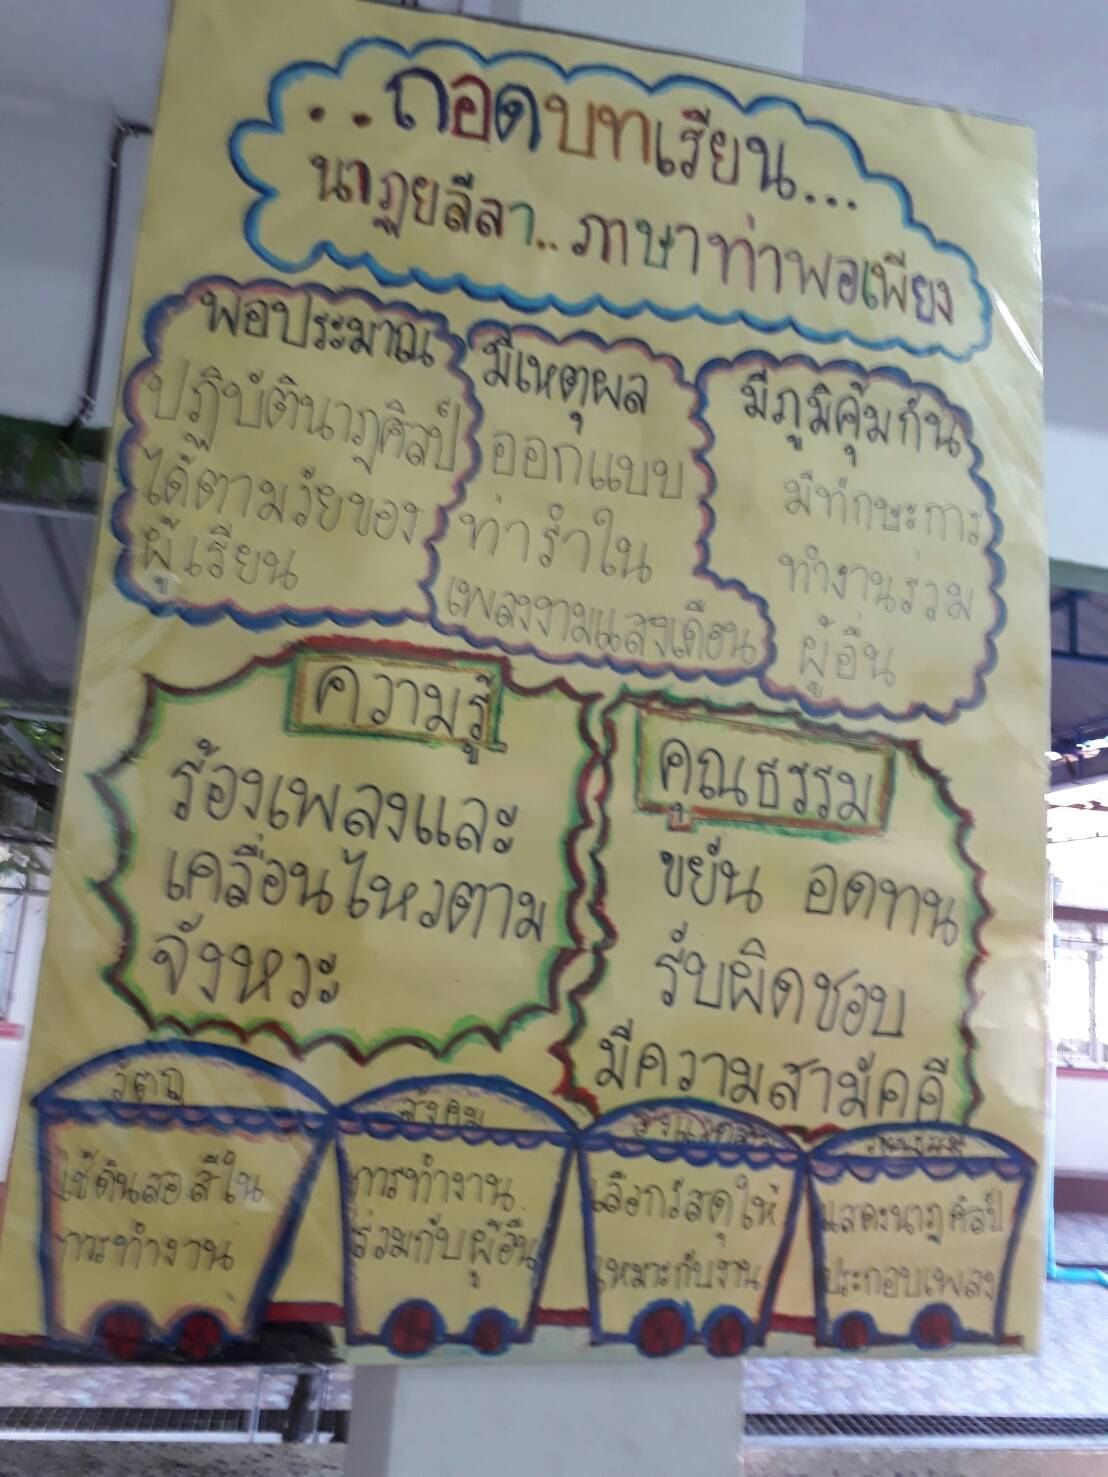 ..ถอดบทเรียน...
นาฏยลีลา..ภาษาท่าพอเพียง
พอประมาณ
ปฏิบัตินาฏศิลป์
ได้ตามวัยของ
ผู้เรียน
มีเหตุผล
ออกแบบ
ท่ารำใน
เพลงงามแสงเดือน
มีภูมิคุ้มกัน
มีทักษะการ
ทำงานร่วม
ผู้อื่น
ความรู้
ร้องเพลงและ
เคลื่อนไหวตาม
จังหวะ
คุณธรรม
ขยัน อดทน
รับผิดชอบ
มีความสามัคคี
วัตถุ
ใช้ดินสอสีใน
การทำงาน
สังคม
การทำงาน
ร่วมกับผู้อื่น
สิ่งแวดล้อม
เลือกวัสดุให้
เหมาะกับงาน
แสดงนาฏศิลป์
ประกอบเพลง